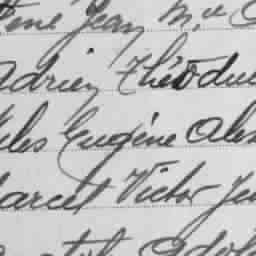 Jean M.
Adrien Théodule
Jules Eugène Alex
Marcel Victor Ju
Adol